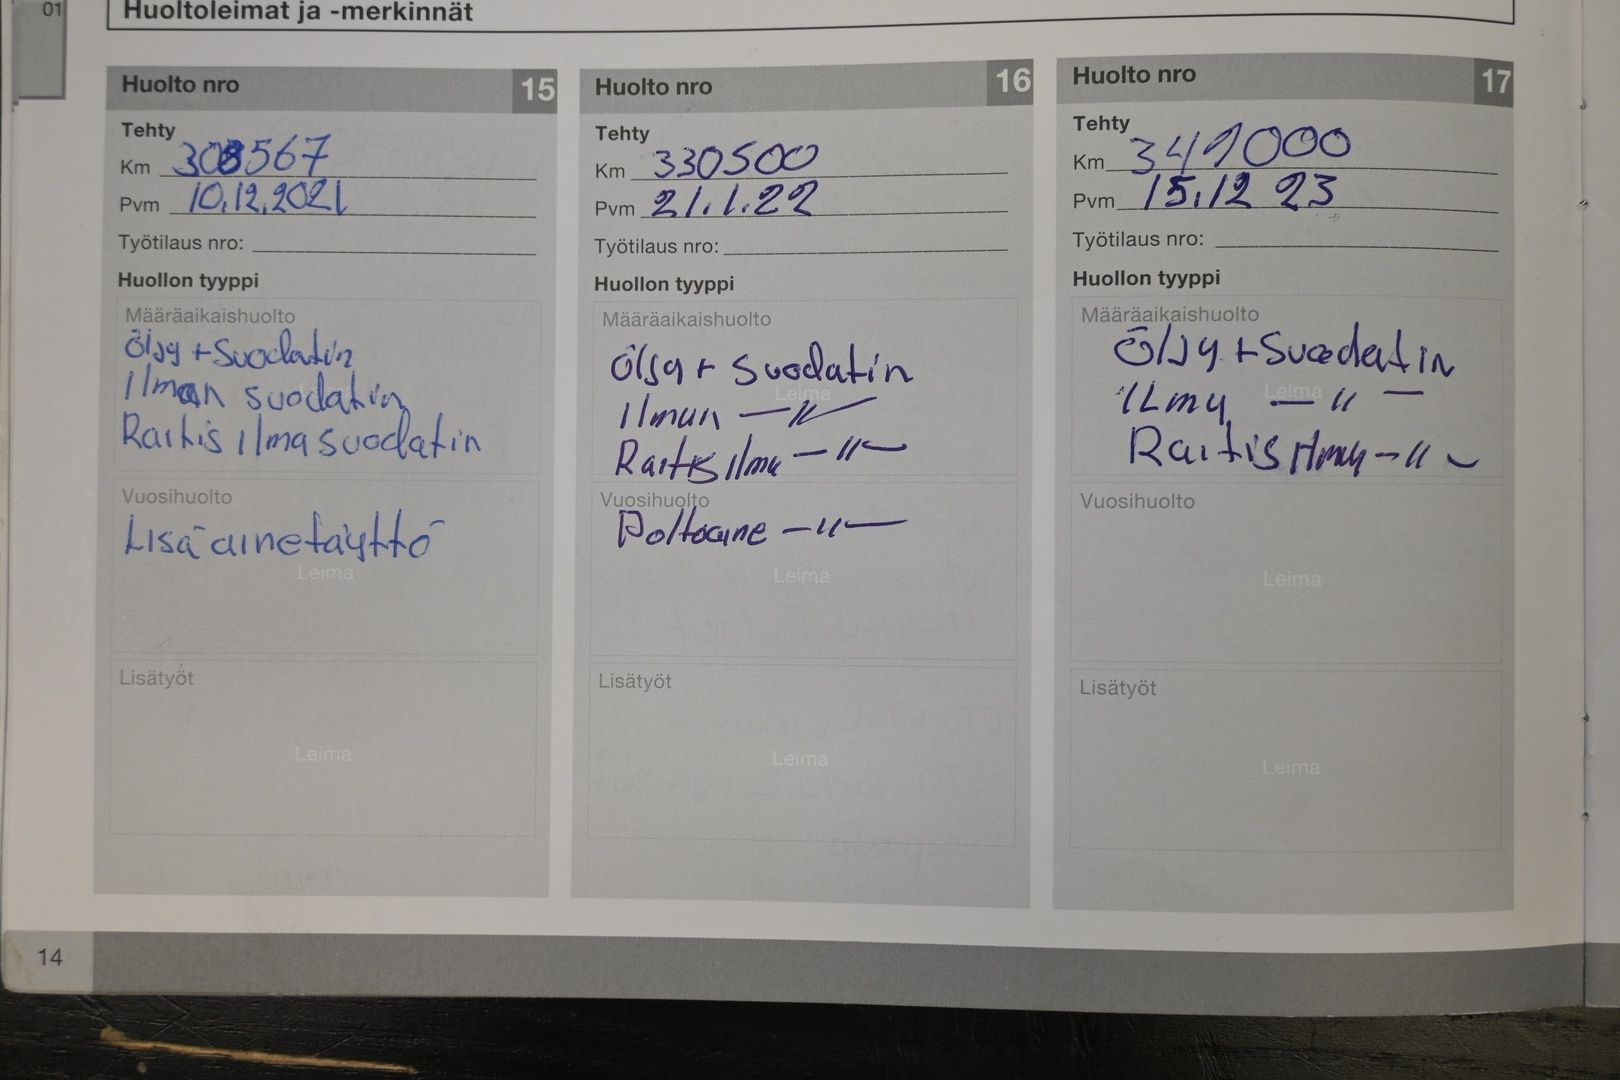 01
Huoltoleimat ja -merkinnät
Huolto nro 15
Tehty
Km 308567
Pvm 10.12.2021
Työtilaus nro:
Huollon tyyppi
Määräaikaishuolto
Öljy + Suodatin
Ilman suodatin
Raitis ilmasuodatin
Vuosihuolto
Lisäainetäyttö
Leima
Lisätyöt
Leima
Huolto nro 16
Tehty
Km 330500
Pvm 21.1.22
Työtilaus nro:
Huollon tyyppi
Määräaikaishuolto
Öljy + Suodatin
Leima
Ilman — 〃 —
Raitis ilma — 〃 —
Vuosihuolto
Poltoaine — 〃 —
Leima
Lisätyöt
Leima
Huolto nro 17
Tehty
Km 341000
Pvm 15.12 23
Työtilaus nro:
Huollon tyyppi
Määräaikaishuolto
Öljy + Suodatin
Leima
Ilma — 〃 —
Raitis ilma — 〃 —
Vuosihuolto
Leima
Lisätyöt
Leima
14